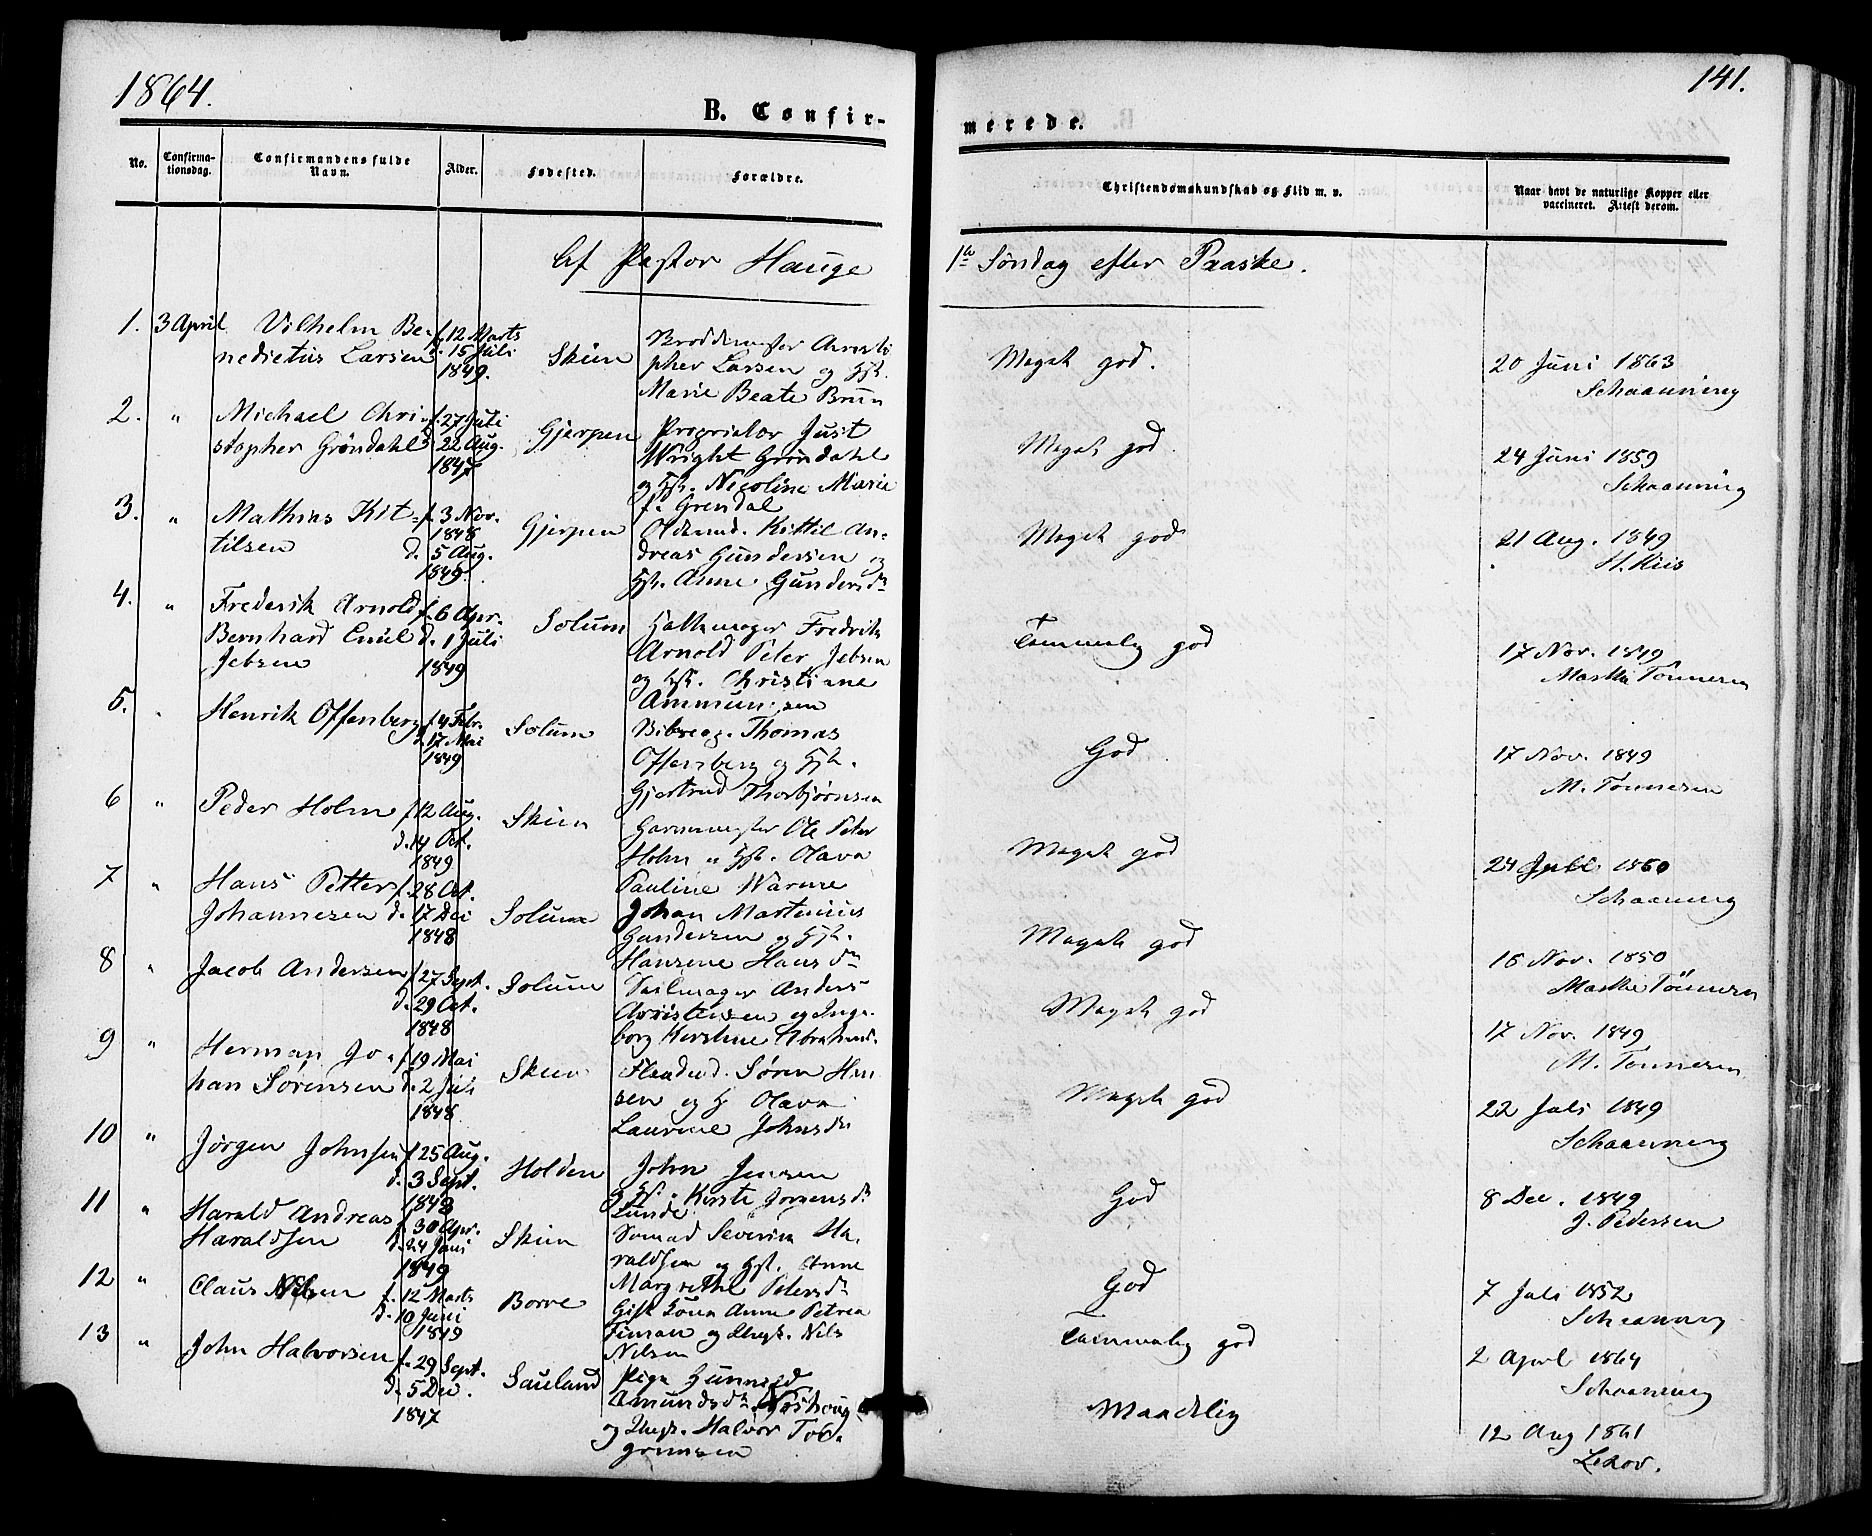 1864.
141.
B. Confir-
merede.
No.
Confirma-
tionsdag.
Confirmandens fulde
Navn.
Alder.
Fødested.
Forældre.
Christendomskundskab og Flid m. v.
Naar havt de naturlige Kopper eller
vaccineret. Attest derom.
Af Pastor Hauge
1ste Søndag efter Paaske.
1. 3 April Vilhelm Be-
nedictus Larsen
f. 12 Marts
d. 15 Juli
1849.
Skien
Christo
pher Larsen og Hst.
Marie Beate Brun
Meget god.
20 Juni 1863
Schaanning
2. " Michael Chri-
stopher Grøndahl
f. 27 Juli
d. 22 Aug.
1847
Gjerpen
Proprietær Just
Wright Grøndahl
og Hst. Nicoline Marie
f. Grøndal
Meget god
24 Juni 1859
Schaanning
3. " Mathias Kit-
tilsen
f. 3 Nov.
1848
d. 5 Aug.
1849.
Gjerpen
Kittil An-
dreas Gundersen og
Hst. Anne Gundersdr
Meget god
21 Aug. 1849
4. " Frederik Arnold
Bernhard Emil
Jebsen
f. 6 Apr.
d. 1 Juli
1849
Solum
Hattemager Fredrik
Arnold Peter Jebsen
og Hst. Christiane
Ammundsen
Temmelig god
17 Nov. 1849
Marthe Tönnesen
5. " Henrik Offenberg
f. 4 Febr.
d. 17 Mai
1849
Solum
Thomas
Offenberg og Hst.
Gjertrud Thorbjørnsen
God
17 Nov. 1849
M. Tönnesen
6 " Peder Holm
f. 12 Aug.
d. 14 Oct.
1849
Skien
Garvermester Ole Peter
Holm " Hst. Olava
Pauline Warme
Meget god
1850
Schaanning
7 " Hans Petter
Johannesen
f. 28 Oct.
d. 17 Dec
1848
Solum
Johan Martinius
Gundersen og Hst.
Hansine Hansdr
Meget god
16 Nov. 1850
Marthe Tönnesen
8 " Jacob Andersen
f. 27 Sept.
d. 29 Oct.
1848
Solum
Seilmager Anders
Christensen og Inge-
borg Kirstine Abrahamsd.
Meget god
17 Nov. 1849
M. Tönnesen
9 " Herman Jo-
han Sörensen
f. 19 Mai
d. 2 Juli
1848
Skien
Søren Han
sen og H Olava
Laurine Johnsdr
Meget god
22 Juli 1849
Schaanning
10 " Jörgen Johnsen
f. 25 Aug.
d. 3 Sept.
1848
Holden
John Jensen
og Hst. Kirsti Jörensdr
Lunde
God
8 Dec. 1849
J. Pedersen
11 " Harald Andreas
Haraldsen
f. 30 Apr.
d. 24 Juni
1849
Skien
Sömad Severin Ha-
raldsen og Hst. Anne
Margrethe Petersdr
God
7 Juli 1852
Schaanning
12 " Claus Nilsen
f. 12 Marts
d. 10 Juni
1849
Borre
Gift Kona Anne Petrea
og Ungk. Nils
Nilsen
Temmelig god
2 April 1864
Schaanning
13 " John Halvorsen
f. 29 Sept.
d. 5 Dec.
1847
Sauland
Pige Gunnild
Amundsdr
og Ungk. Halvor Tor-
grimsen
Maadelig
12 Aug 1861